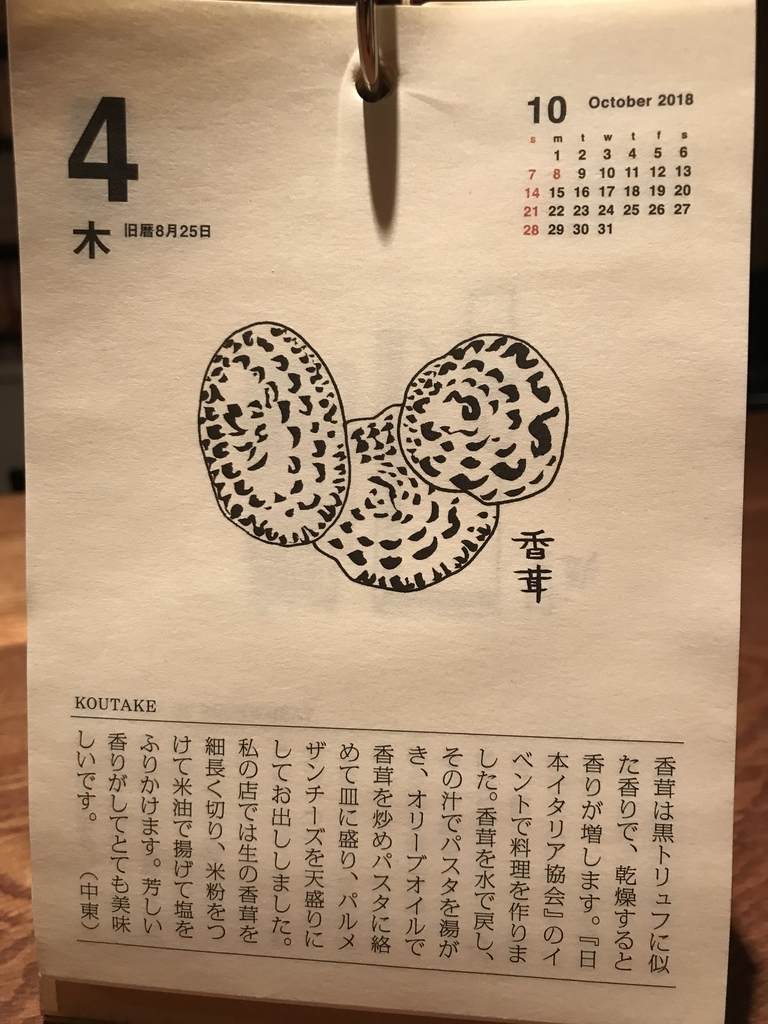 4
木 旧暦8月25日
10 October 2018
s m t w t f s
1 2 3 4 5 6
7 8 9 10 11 12 13
14 15 16 17 18 19 20
21 22 23 24 25 26 27
28 29 30 31
香茸
KOUTAKE
香茸は黒トリュフに似
た香りで、乾燥すると
香りが増します。『日
本イタリア協会』のイ
ベントで料理を作りま
した。香茸を水で戻し、
その汁でパスタを湯が
き、オリーブオイルで
香茸を炒めパスタに絡
めて皿に盛り、パルメ
ザンチーズを天盛りに
してお出ししました。
私の店では生の香茸を
細長く切り、米粉をつ
けて米油で揚げて塩を
ふりかけます。芳しい
香りがしてとても美味
しいです。 (中東)